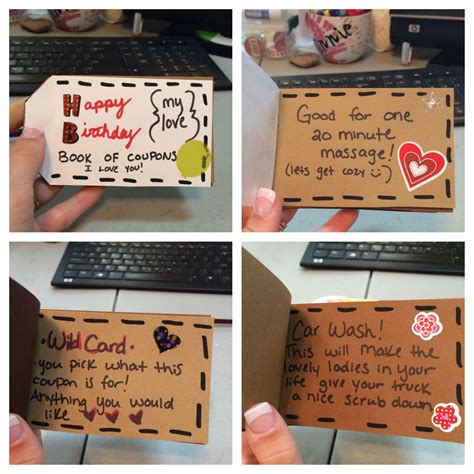 Happy {my
Birthday love}
BOOK OF COUPONS
I LOVE YOU!
Good for one
20 minute
massage!
(lets get cozy :))
· Wild Card ·
· you pick what this
coupon is for!
Anything you would
like
Car Wash!
This will make the
lovely ladies in your
life give your truck
a nice scrub down